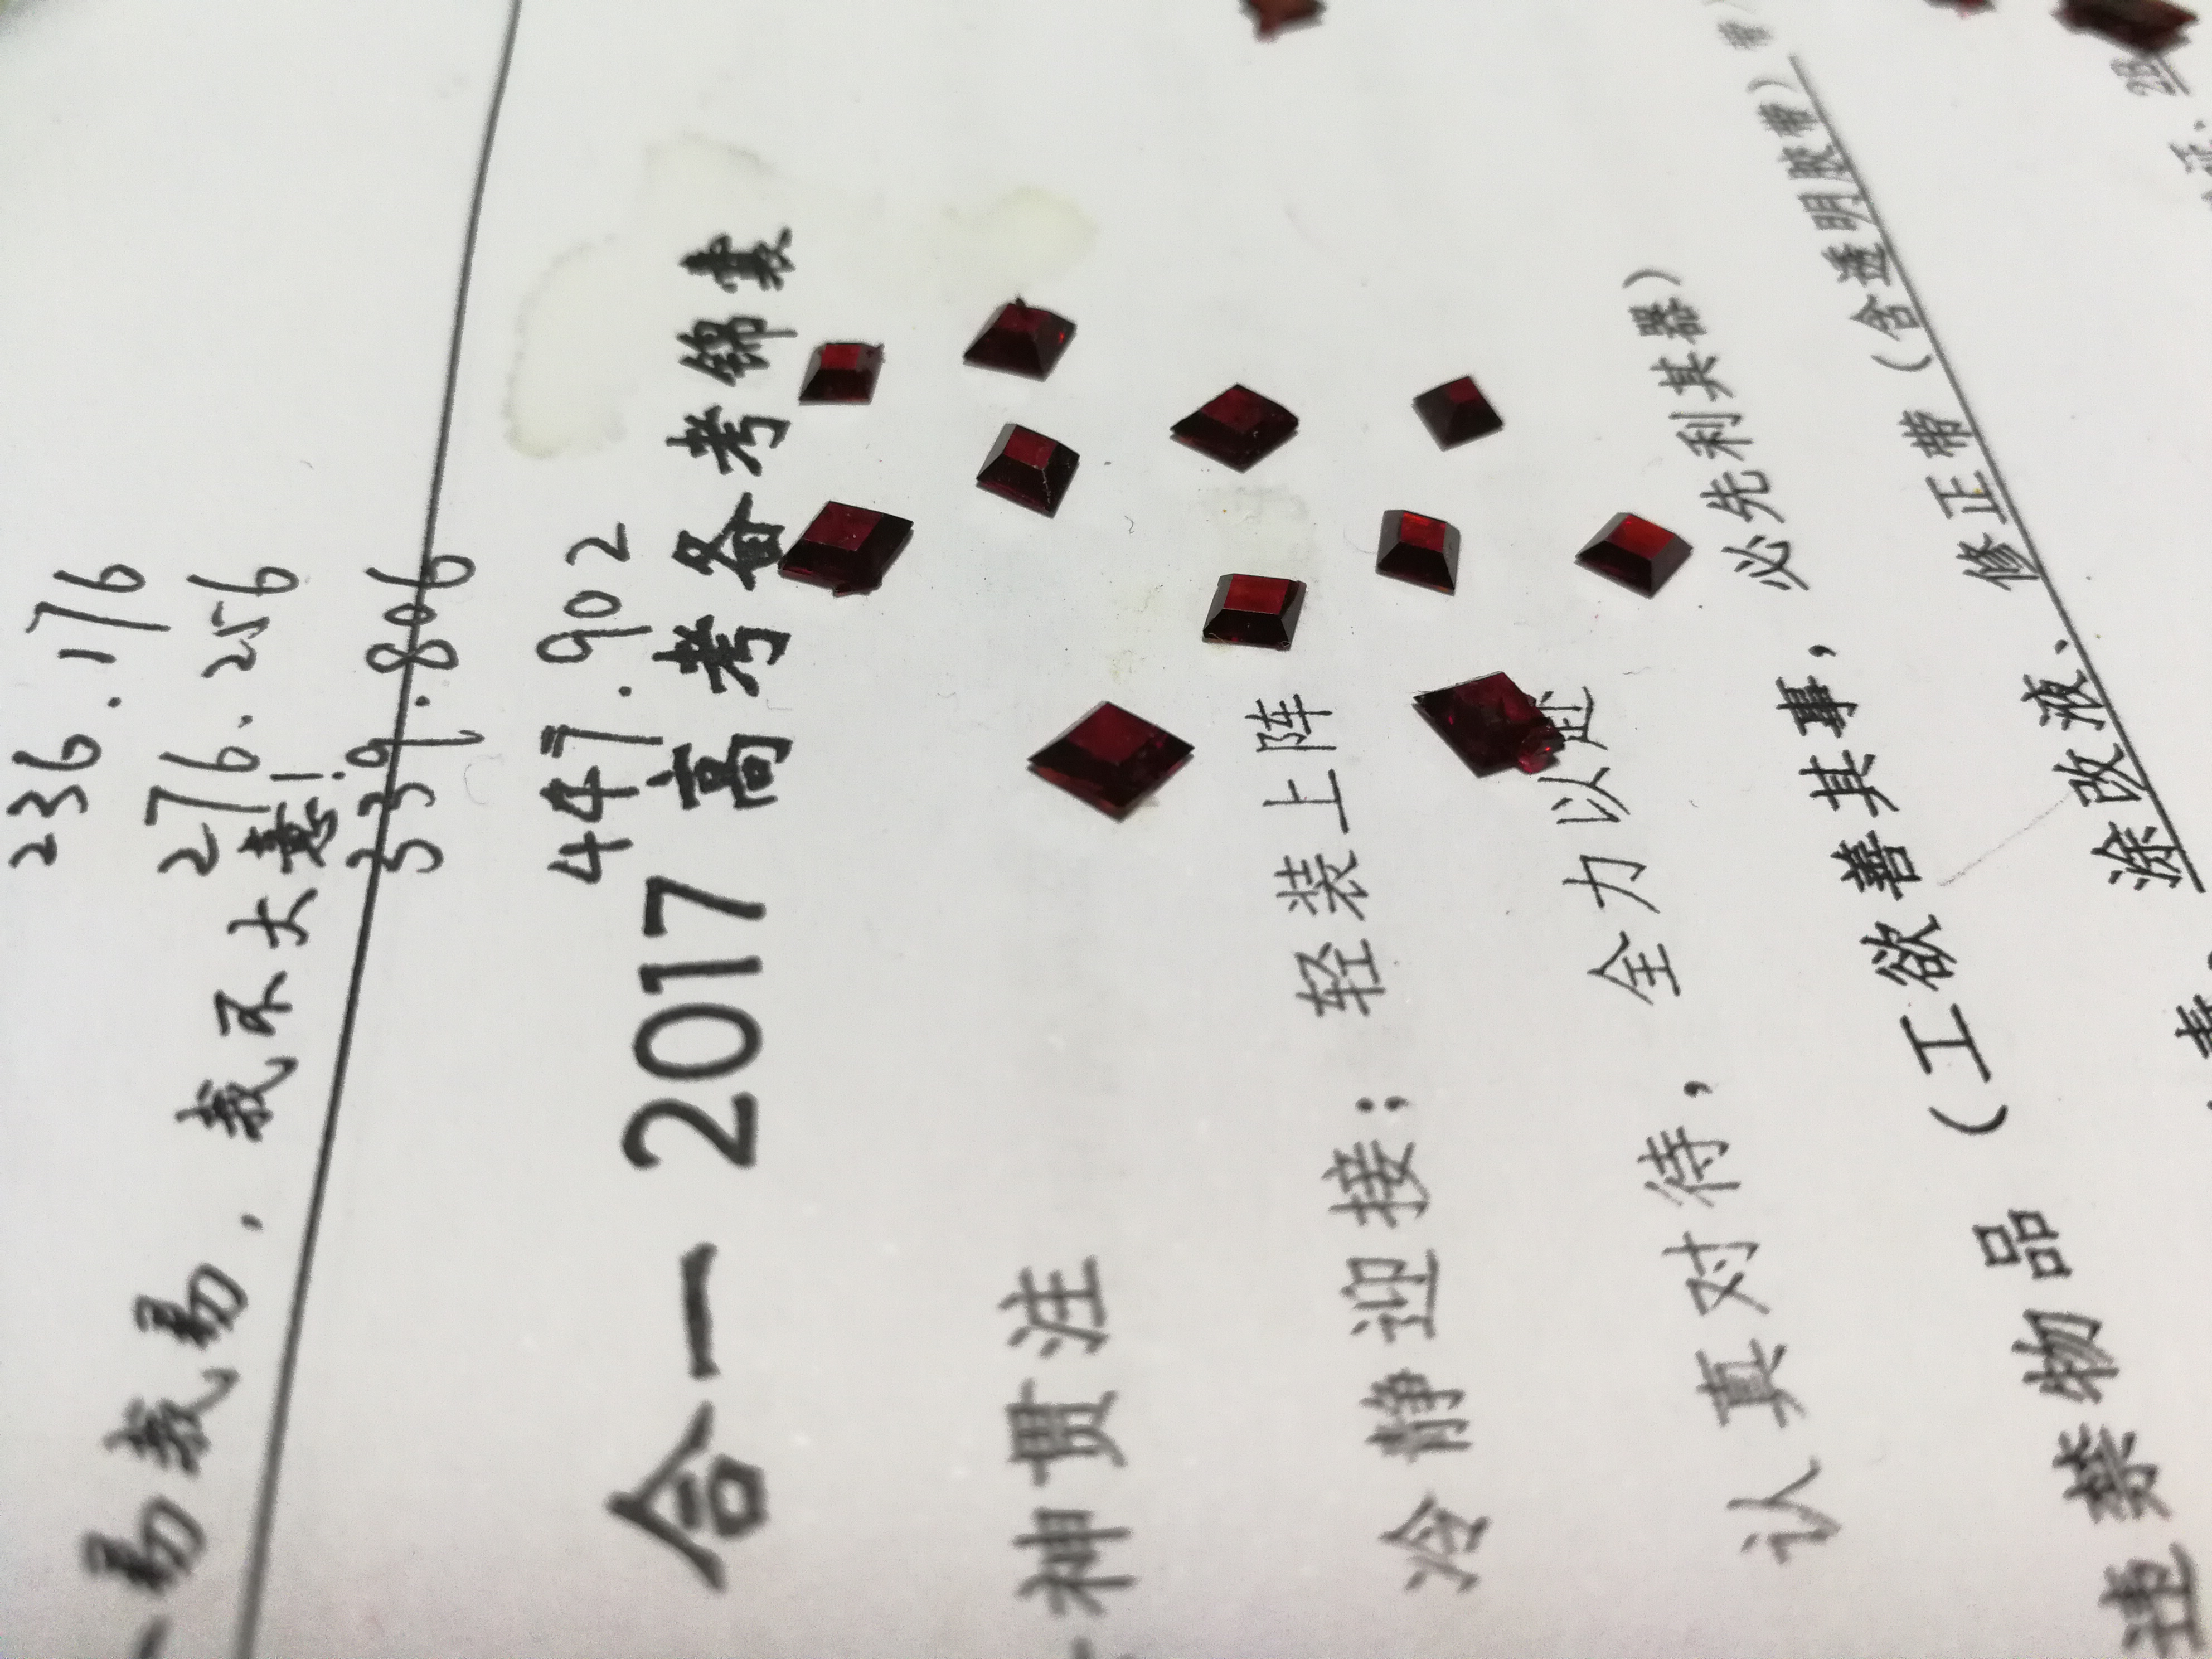 236.176
276.256
339.806
447.902
易我易，我不大意！
合一 2017 高考备考锦囊
神贯注
冷静迎接；轻装上阵
认真对待，全力以赴
违禁物品（工欲善其事，必先利其器）
涂改液、修正带（含透明胶带）